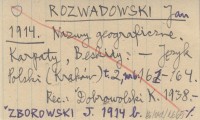 ROZWADOWSKI Jan
1914. Nazwy geograficzne.
Karpaty, Beskidy: — Język
Polski (Kraków) t. 2, 161-'64.
Rec.: Dobrowolski K. 1938.-
*ZBOROWSKI J. 1914 b.